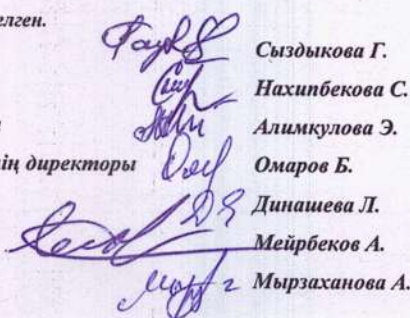 елген.
Сыздыкова Г.
Нахипбекова С.
Алимкулова Э.
нің директоры Омаров Б.
Динашева Л.
Мейрбеков А.
Мырзаханова А.